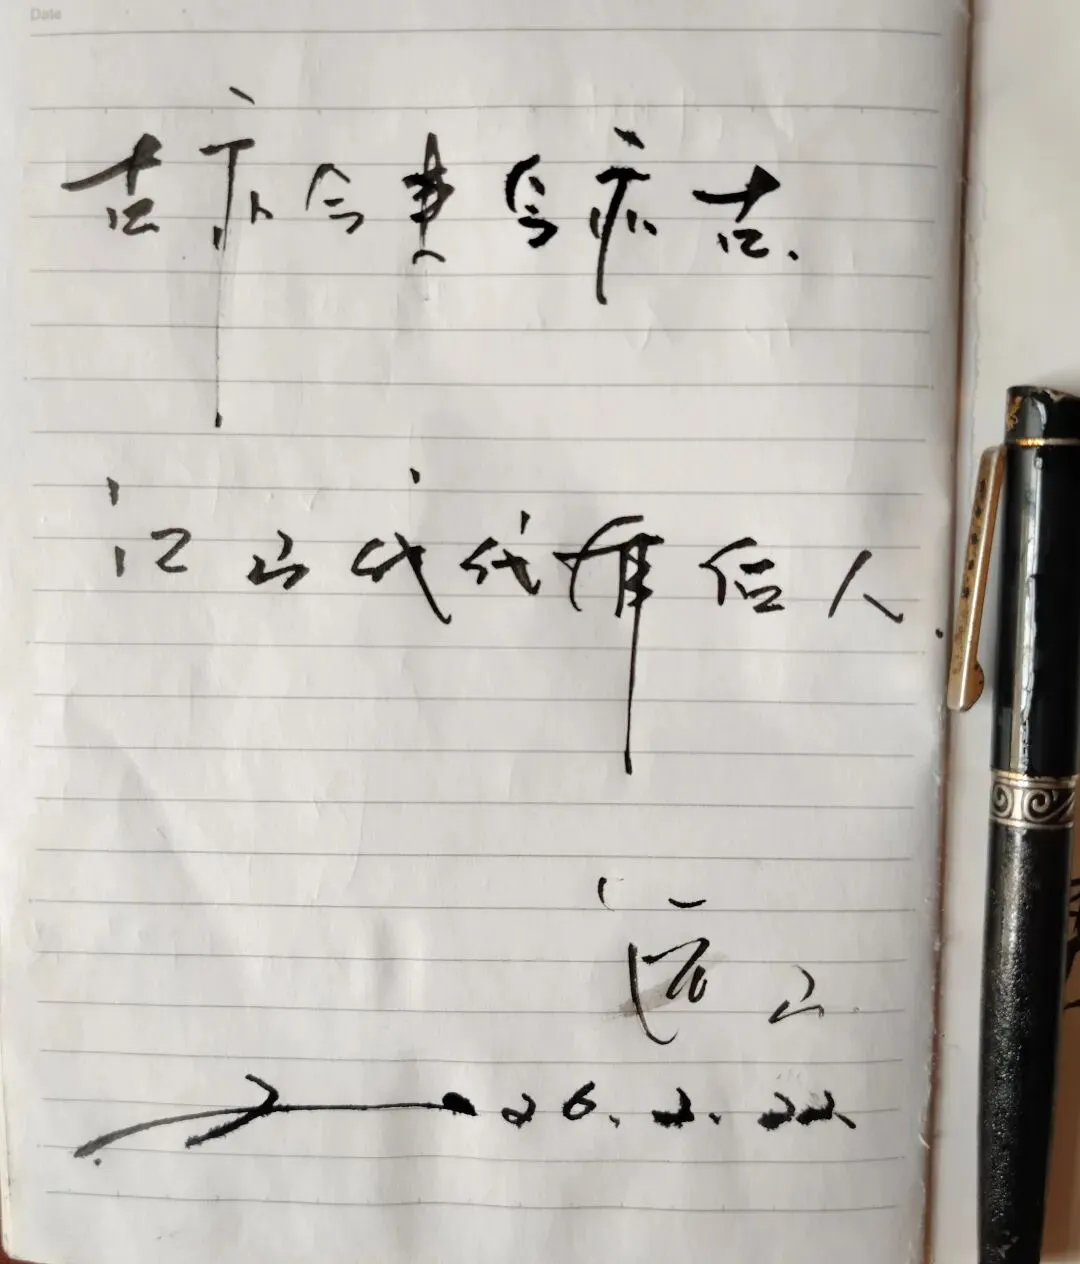 Date
古亦今来今亦古.
江山代代有后人.
远山.
26.2.22